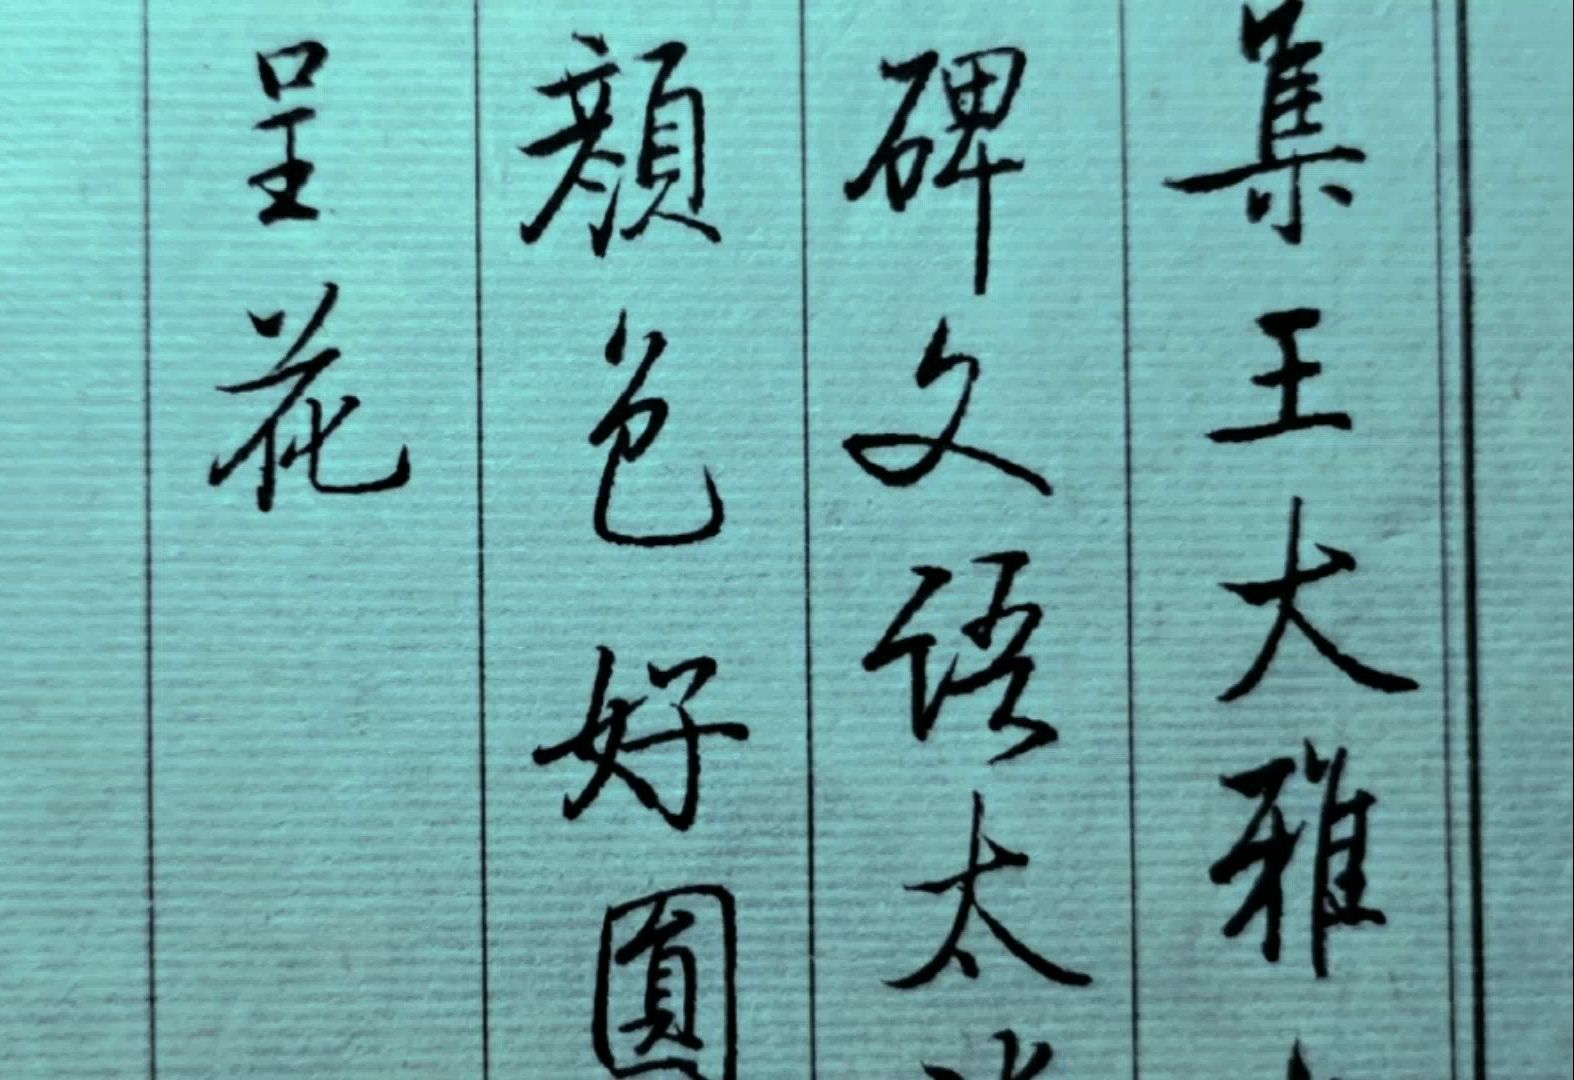 集王大雅
碑文语太
顏色好圓
呈花